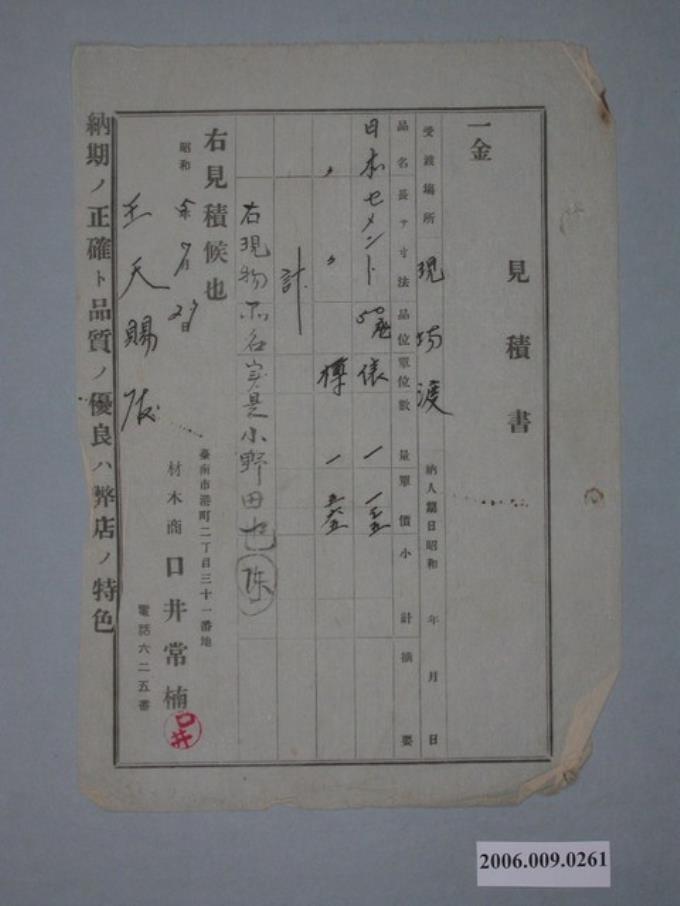 見積書
一金
受渡場所 現場渡 納入期日昭和 年 月 日
品名 長サ寸法 品位 單位 數量 單價 小計 摘要
日本セメント 50瓩 俵 一
〃 〃 樽 一
計
右現物品名実是小野田也 陳
右見積候也
昭和 年 7月 29日
臺南市港町二丁目三十一番地
材木商 口井常楠 口井
電話六二五番
王天賜 殿
納期ノ正確ト品質ノ優良ハ弊店ノ特色
2006.009.0261